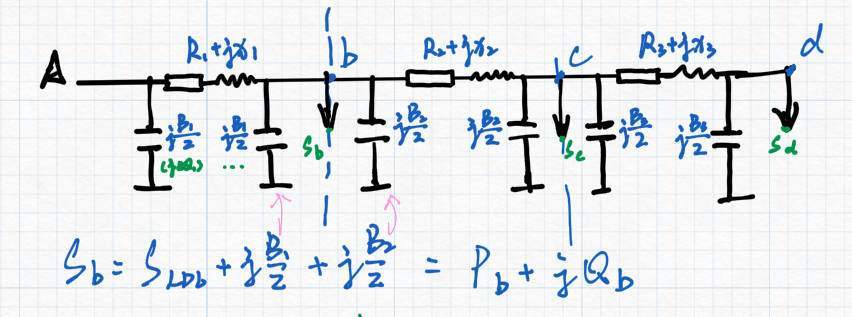 A R₁+jx₁ b R₂+jx₂ c R₃+jx₃ d
j B₁/2 j B₁/2 S_b j B₂/2 j B₂/2 S_c j B₃/2 j B₃/2 S_d
...
S_b = S_LDb + j B₁/2 + j B₂/2 = P_b + jQ_b